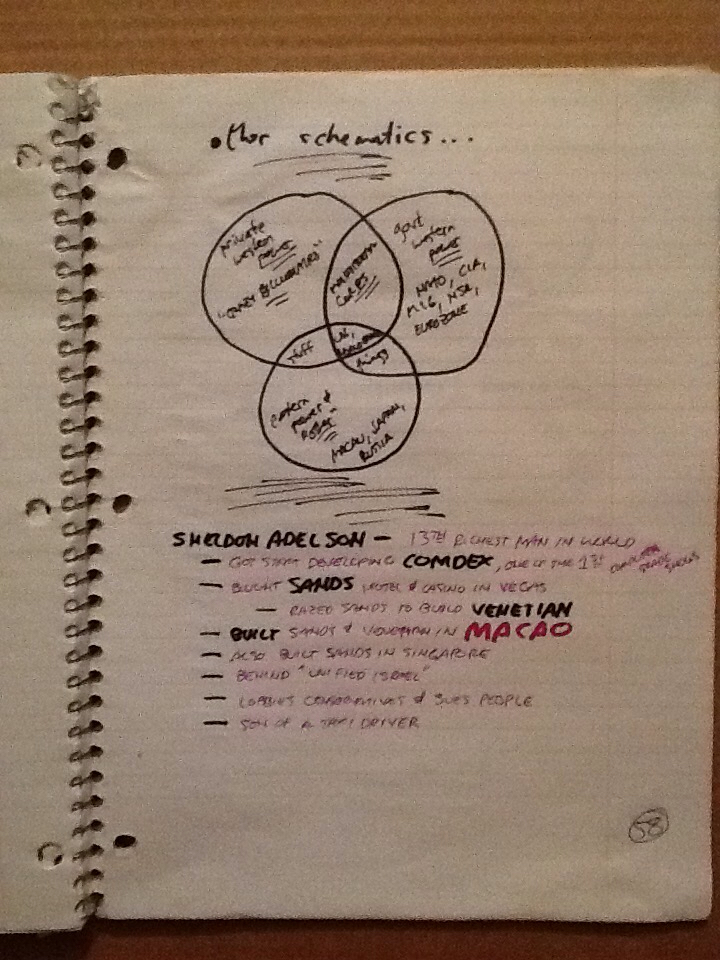 other schematics...
private
western
power
"CRAZY BILLIONAIRES"
MULTINATIONAL
CORPS
gov't
western
power
NATO, CIA,
MI6, NSA,
EUROZONE
stuff
UN,
things
eastern
power &
MACAU, JAPAN,
RUSSIA
SHELDON ADELSON — 13TH RICHEST MAN IN WORLD
— GOT START DEVELOPING COMDEX, ONE OF THE 1ST COMPUTER TRADE SHOWS
— BOUGHT SANDS HOTEL & CASINO IN VEGAS
— RAZED SANDS TO BUILD VENETIAN
— BUILT SANDS & VENETIAN IN MACAO
— ALSO BUILT SANDS IN SINGAPORE
— BEHIND "UNIFIED ISRAEL"
— LOBBIES CONSERVATIVES & SUES PEOPLE
— SON OF A TAXI DRIVER
58